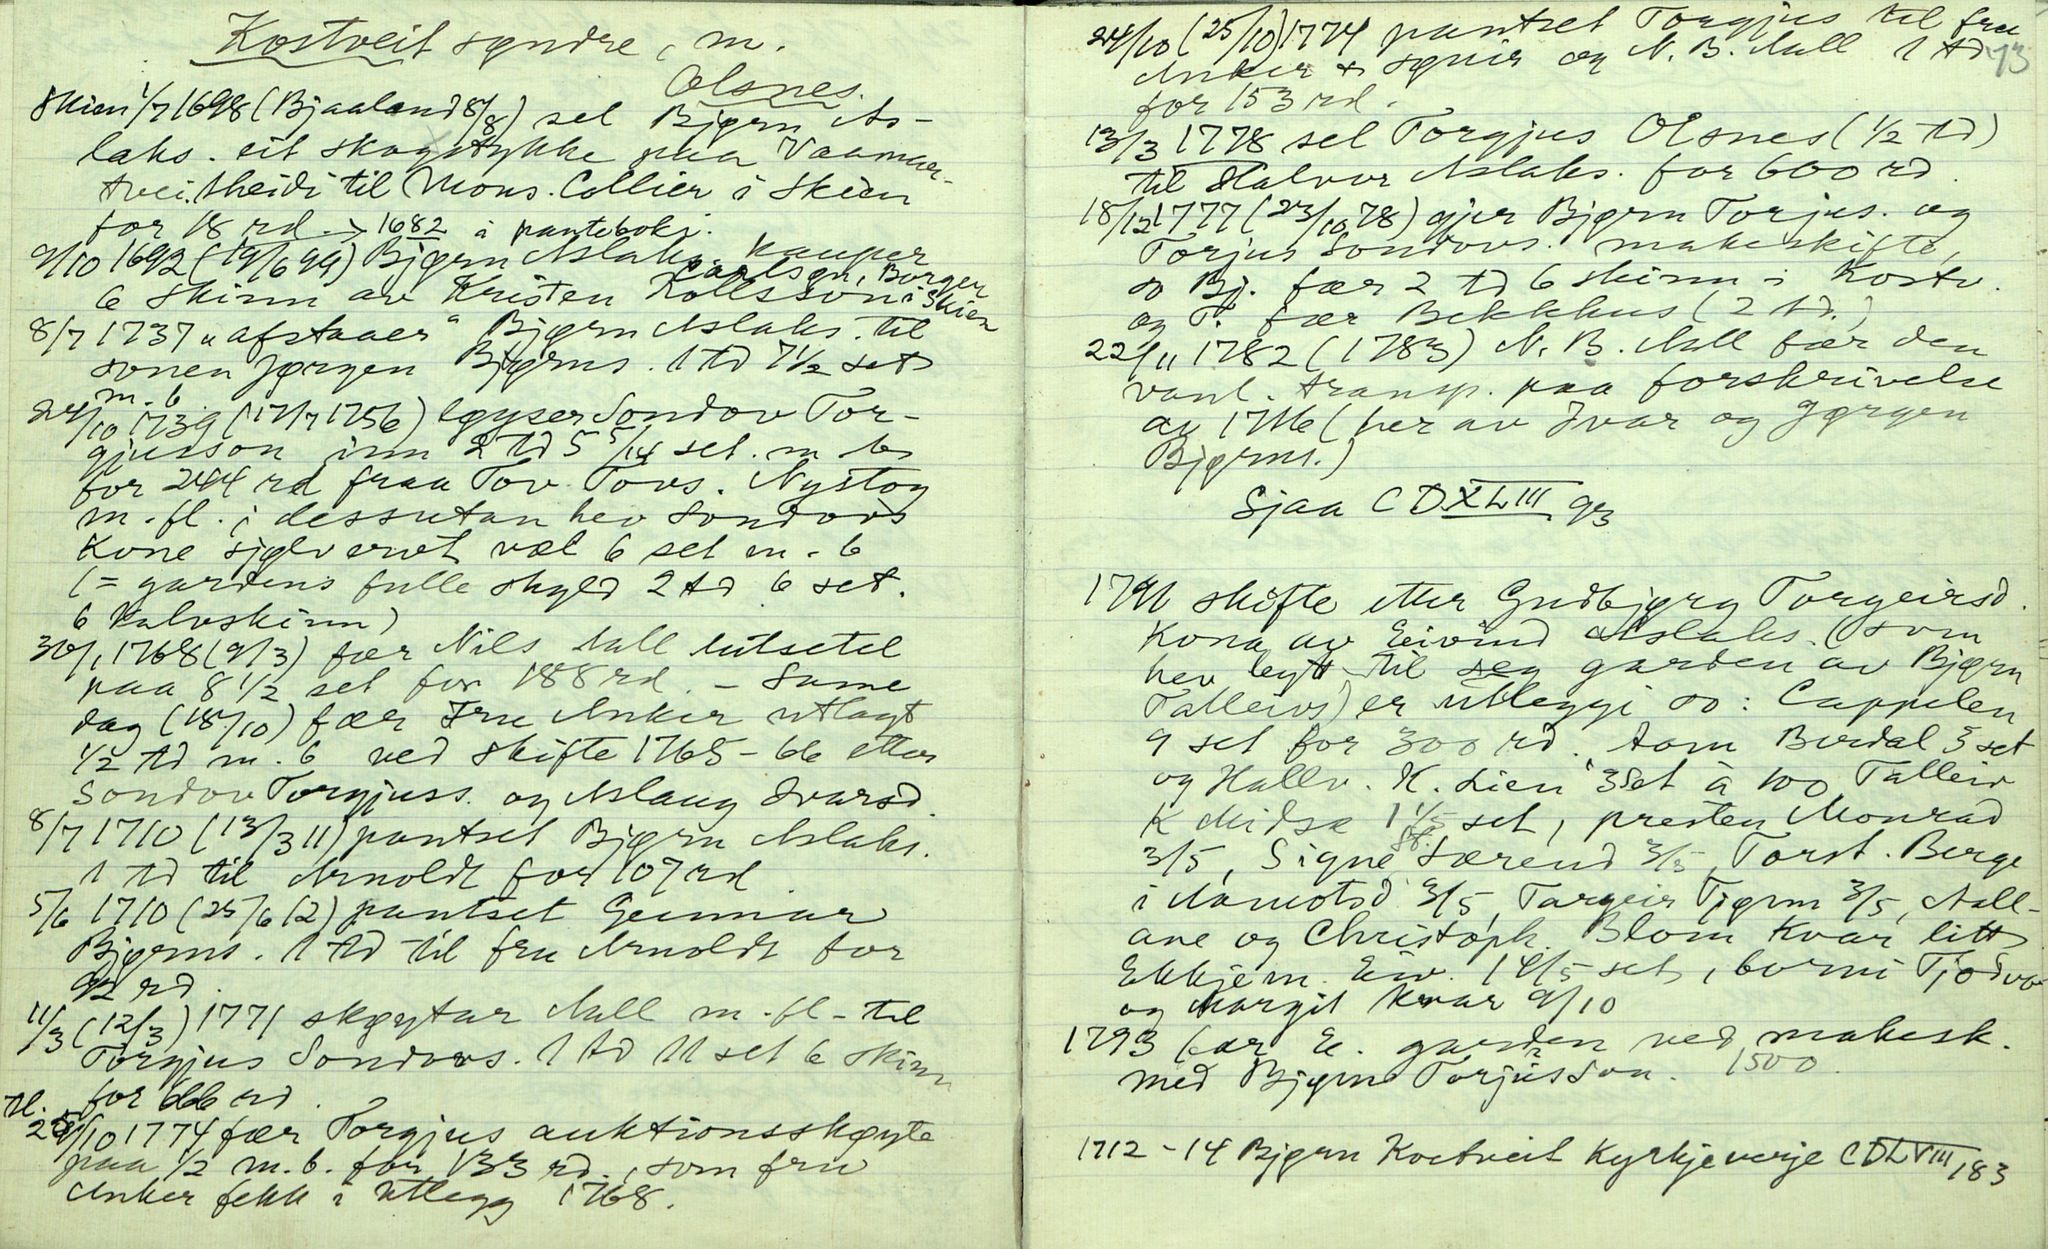 Kostveit søndre, m.
Olsnes.
Skien 1/7 1698 (Bjaaland 8/8) sel Bjørn As-
laks. eit skogstykke paa Vaamar-
tveitheidi til Mons. Collier i Skien
for 18 rd. → 1682 i panteboki.
9/10 1692 (19/6 94) Bjørn Aslaks. kauper
6 skinn av Kristen Carlsøn, Borger i Skien
8/7 1737 "afstaaer" Bjørn Aslaks. til
sonen Jørgen Bjørns. 1 td 7 1/2 set
m. b.
24/10 1739 (17/7 1756) løyser Sondov Tor-
gjusson inn 2 td 5 5/14 set. m b
for 244 rd fraa Tov Tovs. Nystog
m. fl. ; dessutan hev Sondovs
Kone sjølv ervt vel 6 set m. b
(= gardens fulle skyld 2 td 6 set.
6 kalvskinn)
30/1 1768 (9/3) fær Nils Aall lutsetel
paa 8 1/2 set for 188 rd. – Same
dag (18/10) fær Fru Anker utlagt
1/2 td m. b ved skifte 1765–66 etter
Sondov Torgjuss. og Aslaug Ivarsd.
8/7 1710 (13/3 11) pantset Bjørn Aslaks.
1 td til Arnoldt for 107 rd
5/6 1710 (25/6 12) pantset Gunnar
Bjørns. 1 td til fru Arnoldt for
92 rd.
11/3 (12/3) 1771 skøytar Aall m. fl. til
Torgjus Sondovs. 1 td 11 set 6 skinn
for 666 rd.
24/10 1774 fær Torgjus auktionsskøyte
paa 1/2 m. b. for 133 rd., som fru
Anker fekk i utlegg 1768.
73
24/10 (25/10) 1774 pantset Torgjus til fru
Anker + søner og N. B. Aall 1 td
for 153 rd.
13/3 1778 sel Torgjus Olsnes (1/2 td)
til Halvor Aslaks. for 600 rd.
18/12 1777 (23/10 78) gjer Bjørn Torjus. og
Torjus Sondovs. makeskifte,
so Bj. fær 2 td 6 skinn i Kostv.
og T. fær Bekkhus (2 td.)
22/11 1782 (1783) N. B. Aall fær den
vanl. transp. paa forskrivelse
av 1716 (her av Ivar og Jørgen
Bjørns.)
Sjaa CDXLIII 93
1791 skifte etter Gudbjørg Torgeirsd.
Kona av Eivind Aslaks. (som
hev bytt til seg garden av Bjørn
Talleivs) er utleggi so: Cappelen
9 set for 300 rd. Aom Berdal 3 set
og Hallv. K. Lien 3 set à 100 Talleiv
K Midsæ 1 1/5 set, presten Monrad
3/5, Signe Særend 3/5, Torst. Berge
i Aamotsd 3/5, Targeir Tjønn 3/5, Aall-
ane og Christoph. Blom kvar litt
Ekkjem. Eiv. 14/5 set, borni Tjodvor
og Margit kvar 9/10
1793 fær E. garden ved makesk.
med Bjørn Torjusson. 1500
1712–14 Bjørn Kostveit Kyrkjeverje CDLVIII 183